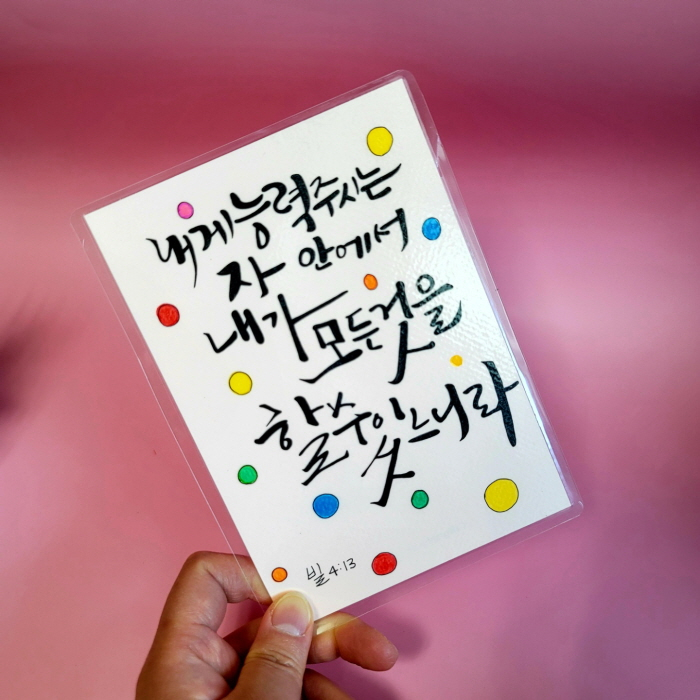 내게능력주시는
자 안에서
내가 모든것을
할수있느니라
빌4:13